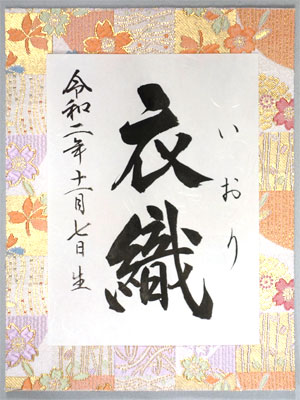 いおり
衣織
令和二年十一月七日生